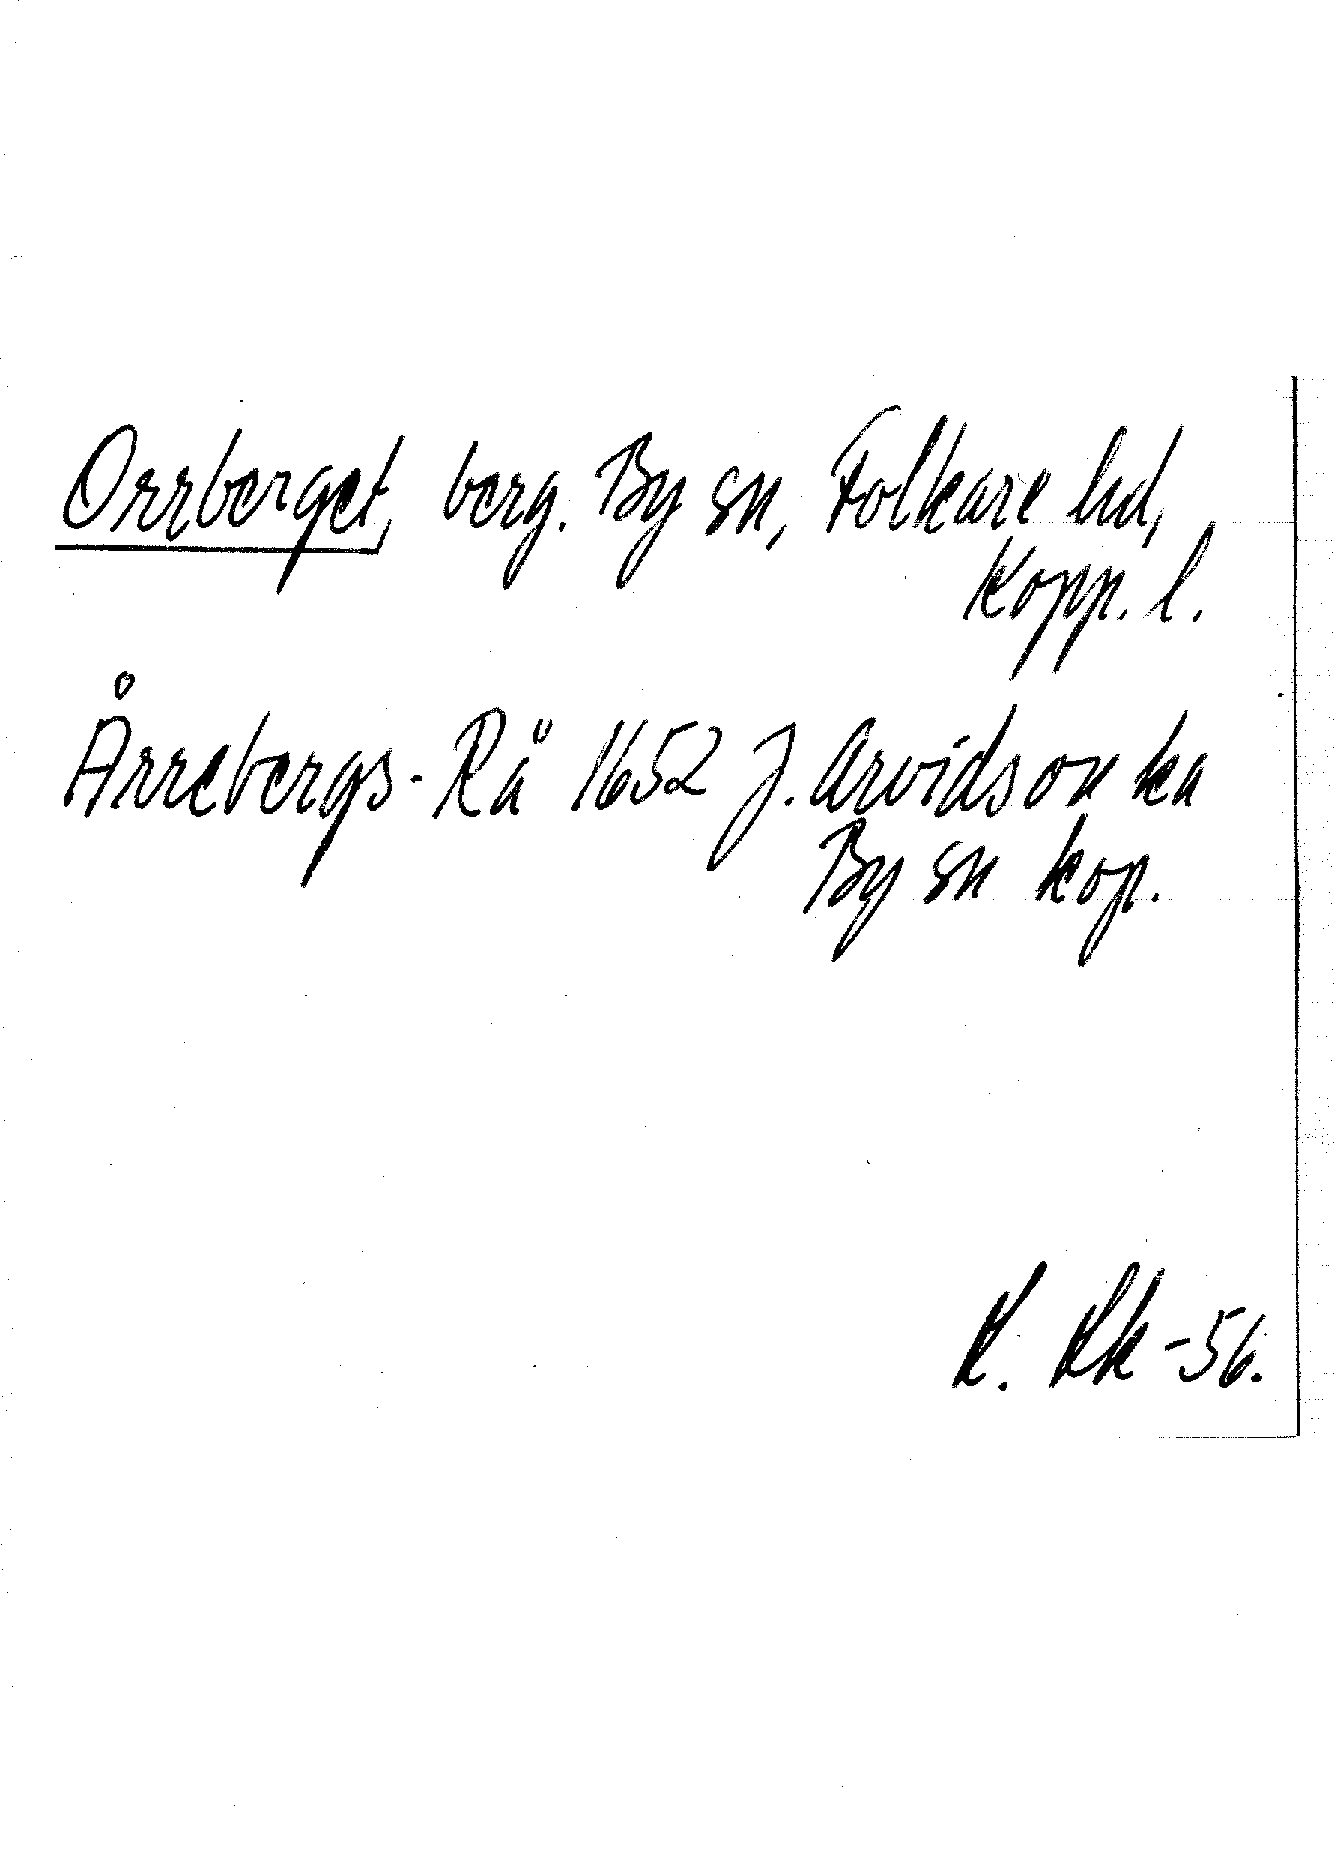 Orrberget, berg. By sn, Folkare hd,
Kopp. l.
Årrebergs-Rå 1652 J. Arvidson ka
By sn kop.
K. Rk -56.